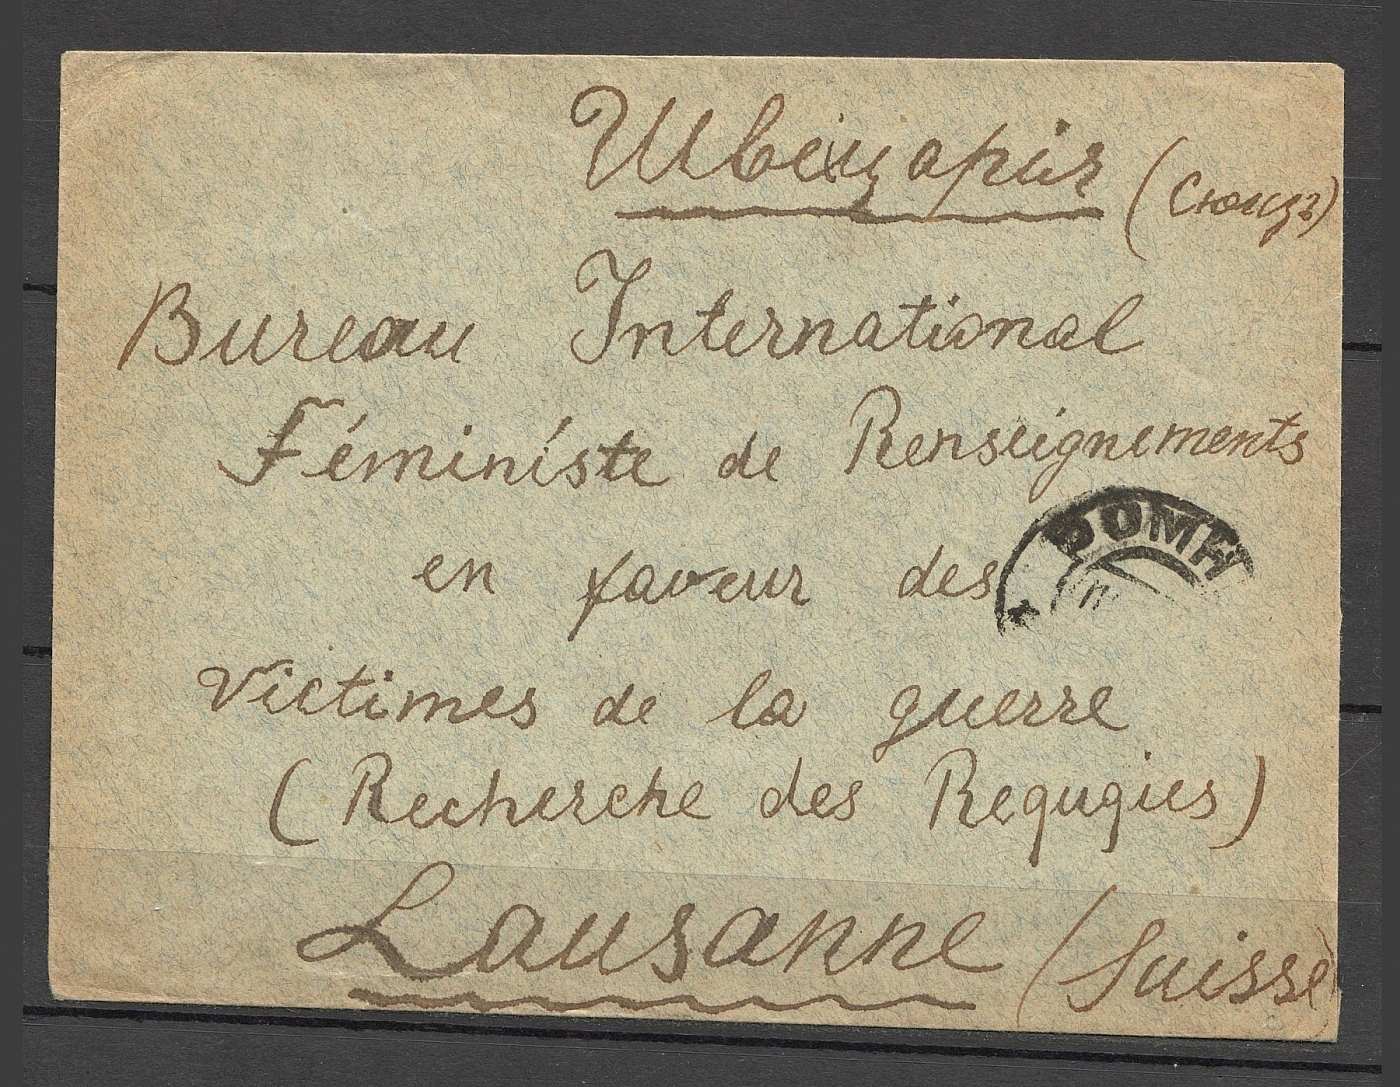 Швейцарія (Сюисъ)
Bureau International
Féministe de Renseignements
en faveur des
DOMH
victimes de la guerre
(Recherche des Requgies)
Lausanne (Suisse)